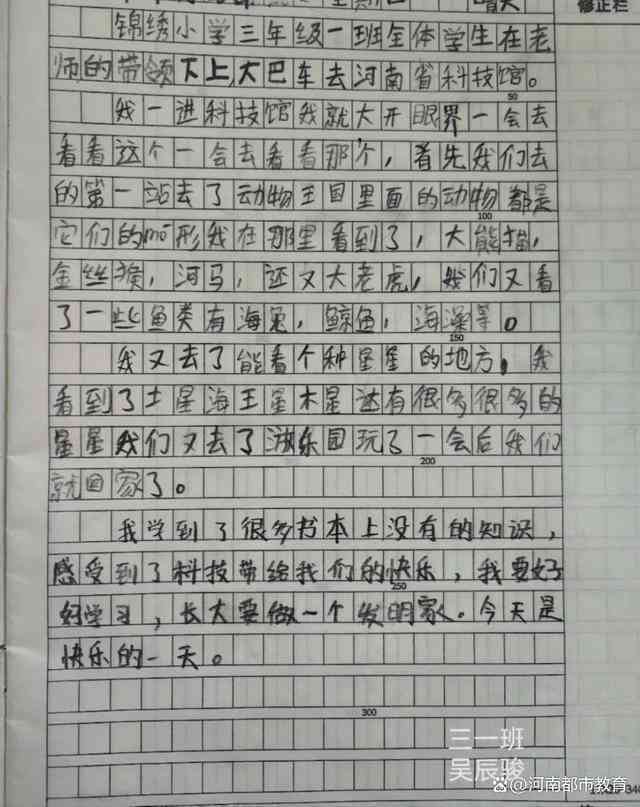 晴天
修正栏
锦绣小学三年级一班全体学生在老
师的带领下上,大巴车去河南省科技馆。
50
我一进科技馆我就大开眼界一会去
看看这个一会去看看那个,首先我们去
的第一站去了动物王国里面的动物都是
100
它们的mó形我在那里看到了,大熊猫,
金丝猴,河马,还又大老虎,我们又看
了一些鱼类有海兔,鲸鱼,海澡等。
150
我又去了能看个种星星的地方,我
看到了土星海王星木星还有很多很多的
星星我们又去了游乐园玩了一会后我们
200
就回家了。
我学到了很多书本上没有的知识,
感受到了科技带给我们的快乐,我要好
250
好学习,长大要做一个发明家。今天是
快乐的一天。
300
三一班
吴辰骏
河南都市教育